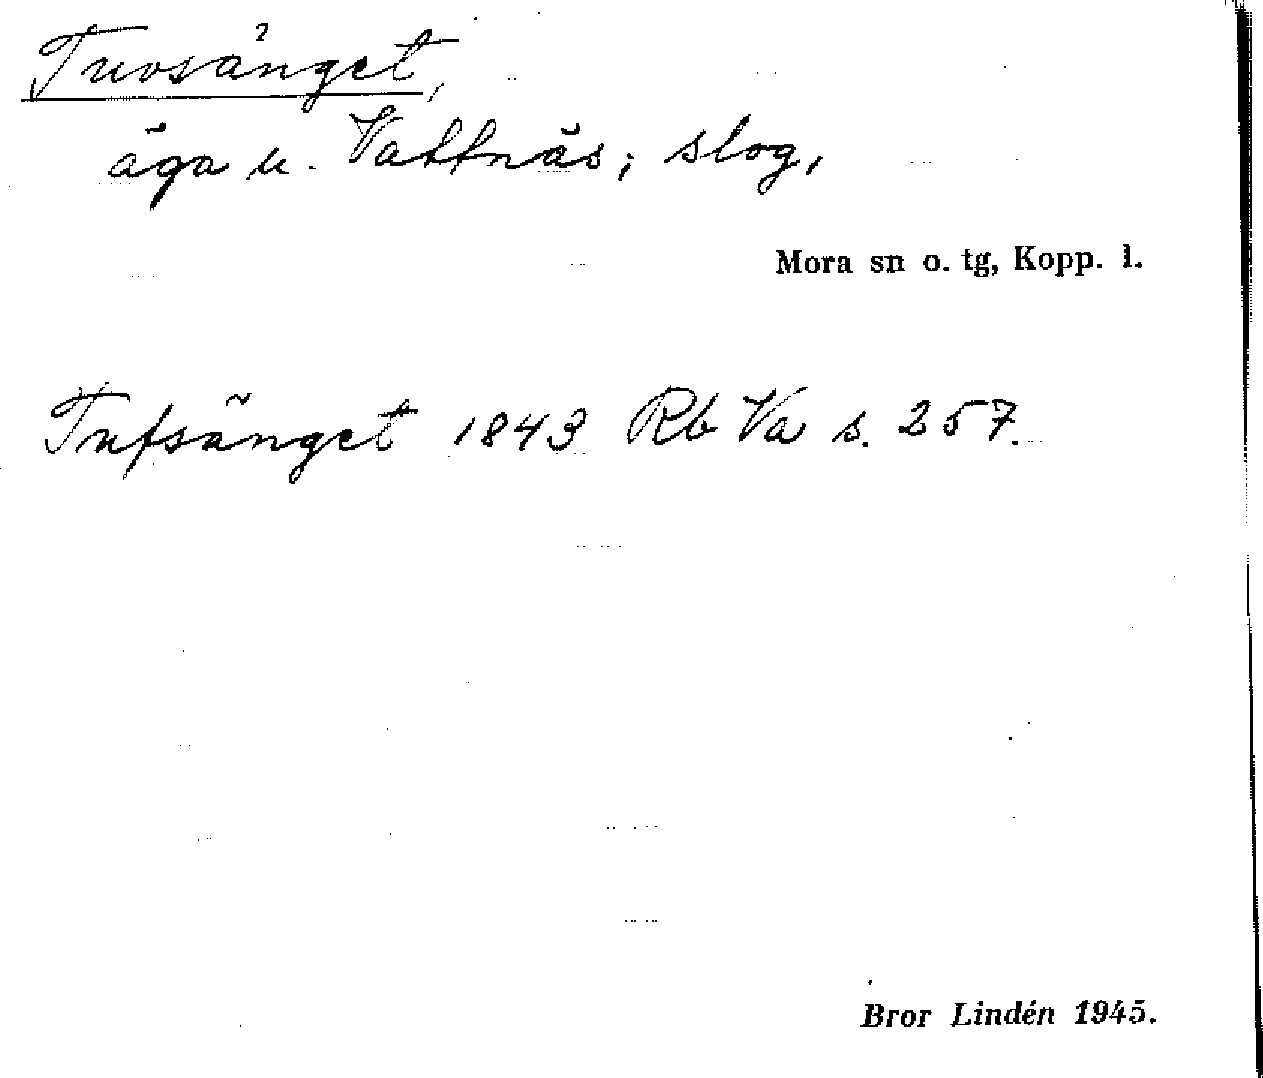 Tuvsänget,
äga u. Vattnäs; slog,
Mora sn o. tg, Kopp. l.
Tufsänget 1843 Rb Va s. 257.
Bror Lindén 1945.